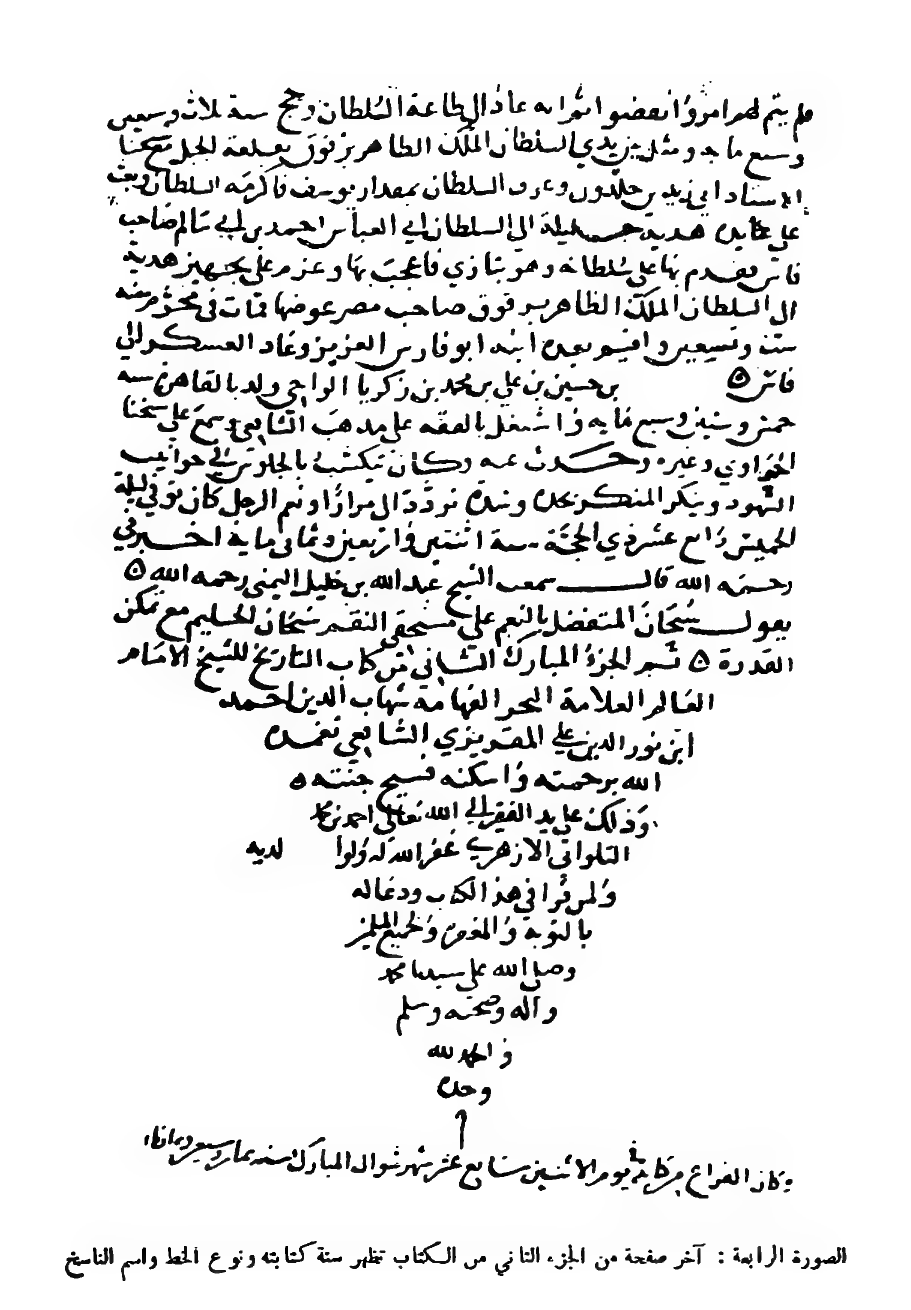 فلم يتم لهم امر وانفضوا ثم انه عاد الى طاعة السلطان وحج سنة ثلاث وتسعين
وسبع ماىة ومثل بين يدي السلطان الملك الظاهر برقوق بقلعة الجبل مع شيخنا
الاستاد ابي زيد بن خلدون وعرف السلطان بمقدار يوسف فاكرمه السلطان وبعث
على يده هدية جليلة الى السلطان ابي العباس احمد بن ابي سالم صاحب
فاس فقدم بها على سلطانه وهو بتازي فاعجب بها وعزم على تجهيز هدية
الى السلطان الملك الظاهر برقوق صاحب مصر عوضها فمات في محرم سنة
ست وتسعين واقيم بعده ابنه ابو فارس العزيز وعاد العسكر الى
فاس ٥ بن حسين بن علي بن محمد بن زكريا الواحي ولد بالقاهرة سنة
خمس وستين وسبع ماية واشتغل بالفقه على مدهب الشافعي وسمع على شيخنا
الحراوي وغيره وحدث عنه وكان يتكسب بالجلوس في حوانيت
الشهود وينكر المنكر بحده وشده تردد الى مرارا ونعم الرجل كان توفي ليلة
الخميس رابع عشر ذي الحجة سنة اثنتين واربعين وثماني ماية اخبرني
رحمه الله قال سمعت الشيخ عبد الله بن خليل اليمني رحمه الله ٥
يقول سبحان المتفضل بالنعم على مستحقي النقم سبحان الحليم مع تمكن
القدرة ٥ تم الجزء المبارك الثاني من كتاب التاريخ للشيخ الامام
العالم العلامة البحر الفهامة شهاب الدين احمد
ابن نور الدين علي المقريزي الشافعي تغمده
الله برحمته واسكنه فسيح جنته ٥
وذلك على يد الفقير الى الله تعالى احمد بن محمد
التلواني الازهري غفر الله له ولوا لديه
ولمن قرا في هذ الكتاب ودعا له
بالتوبة والمغفرة ولجميع المسلمين
وصلى الله على سيدنا محمد
واله وصحبه وسلم
والحمد لله
وحده
وكان الفراغ من كتابته في يوم الاثنين سابع عشر شهر شوال المبارك سنة ثمان وسبعين وثمانمائة
الصورة الرابعة : آخر صفحة من الجزء الثاني من الكتاب تظهر سنة كتابته ونوع الخط واسم الناسخ